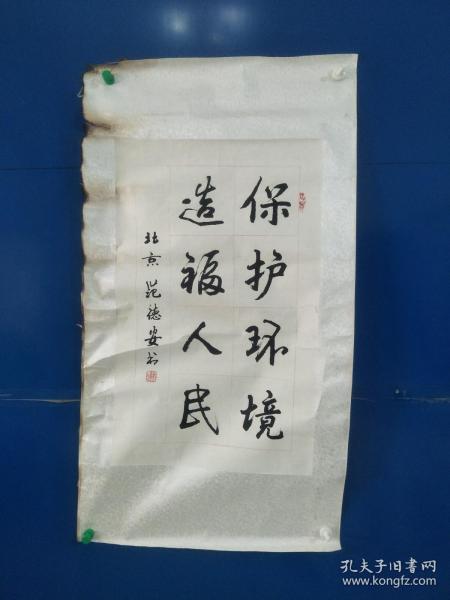 保护环境
造福人民
北京 范德安书
孔夫子旧书网
www.kongfz.com